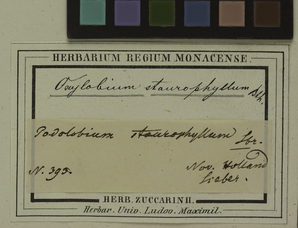 HERBARIUM REGIUM MONACENSE.
Oxylobium staurophyllum Bth.
Podolobium staurophyllum Sbr.
N. 393.
Nov. Holland
Sieber.
HERB. ZUCCARINII.
Herbar. Univ. Ludov. Maximil.